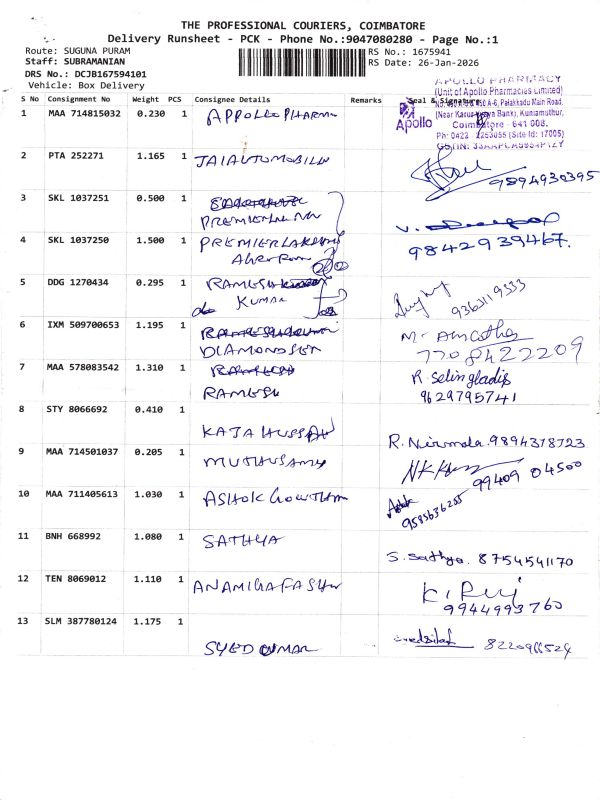 THE PROFESSIONAL COURIERS, COIMBATORE
Delivery Runsheet - PCK - Phone No.:9047080280 - Page No.:1
Route: SUGUNA PURAM
RS No.: 1675941
Staff: SUBRAMANIAN
RS Date: 26-Jan-2026
DRS No.: DCJB167594101
Vehicle: Box Delivery
S No Consignment No Weight PCS Consignee Details Remarks Seal & Signature
APOLLO PHARMACY
(Unit of Apollo Pharmacies Limited)
Palakkadu Main Road,
Bank), Kuniamuthur,
Apollo Coimbatore - 641 008.
(Site Id: 17005)
1 MAA 714815032 0.230 1 APPOLLO PHARMA
2 PTA 252271 1.165 1 JAIAUTOMOBILE
9894930395
3 SKL 1037251 0.500 1
PREMIER
9842939467.
4 SKL 1037250 1.500 1 PREMIER
5 DDG 1270434 0.295 1 RAMESH
KUMAR
9363119333
6 IXM 509700653 1.195 1
DIAMONDSEN
7708422209
7 MAA 578083542 1.310 1
RAMESH
R. Selin gladis
9629795741
8 STY 8066692 0.410 1
KAJA HUSSAN
R. Nirmala. 9894378723
9 MAA 714501037 0.205 1
MUTHUSAMY
99409 04500
10 MAA 711405613 1.030 1 ASHOK GOWTHAM
9585636255
11 BNH 668992 1.080 1 SATHYA
S. Sathya. 8754541170
12 TEN 8069012 1.110 1
9944993760
13 SLM 387780124 1.175 1
SYED UMAR
8220966524